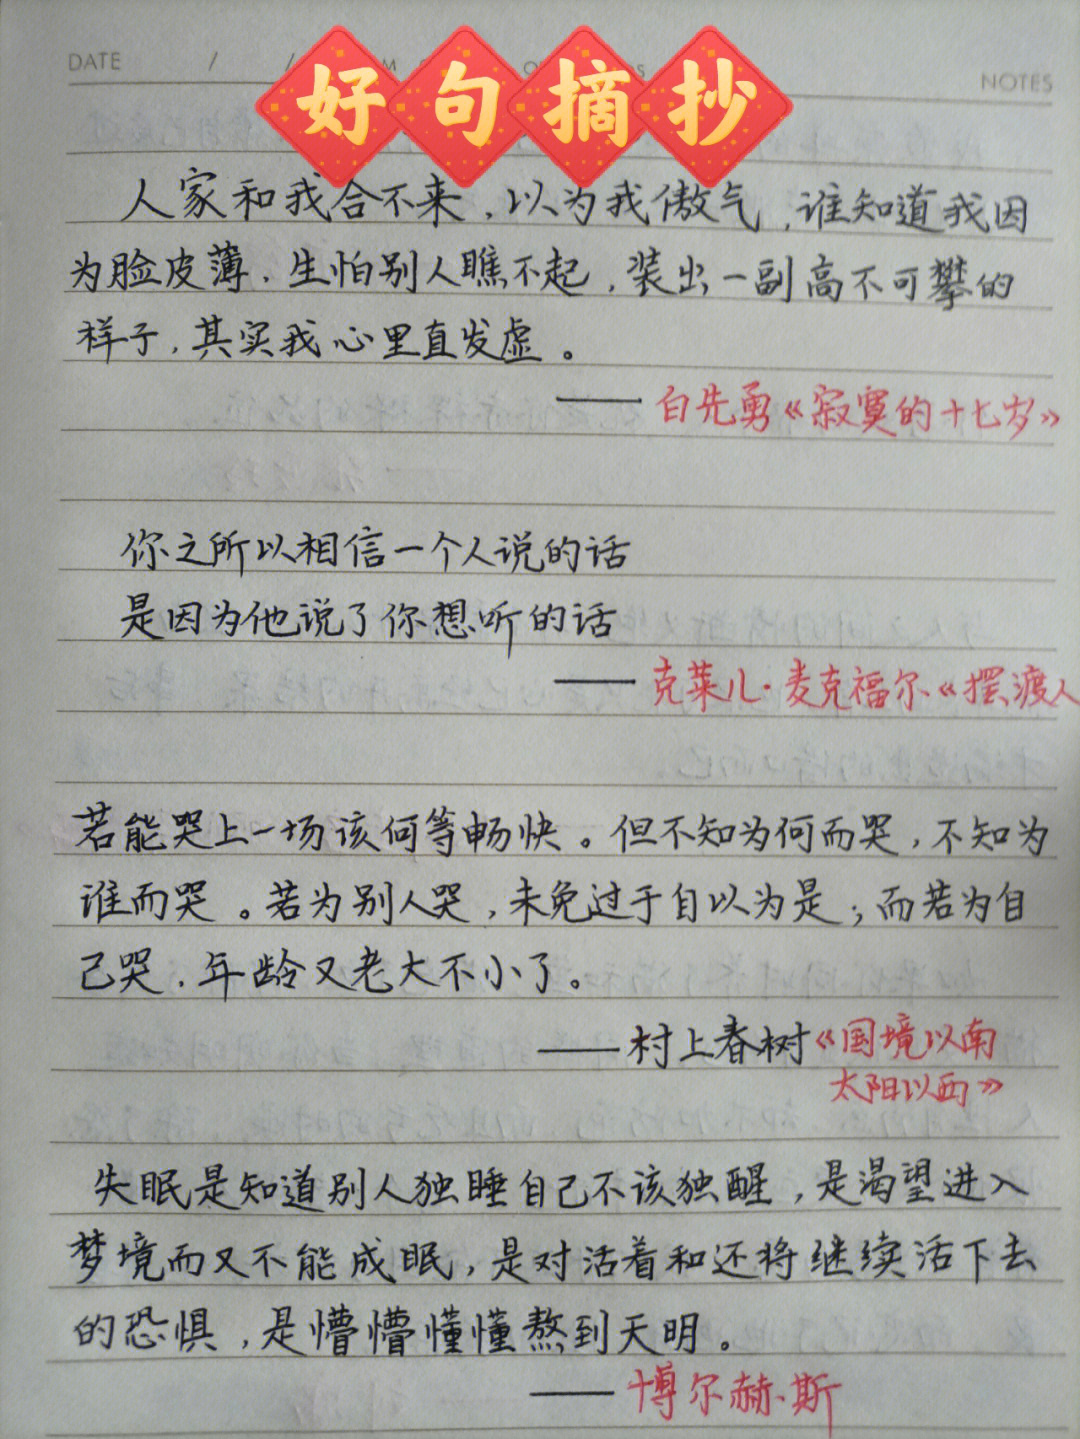 DATE / /
NOTES
好句摘抄
人家和我合不来,以为我傲气,谁知道我因
为脸皮薄,生怕别人瞧不起,装出一副高不可攀的
样子,其实我心里直发虚。
——白先勇《寂寞的十七岁》
你之所以相信一个人说的话
是因为他说了你想听的话
——克莱儿·麦克福尔《摆渡人
若能哭上一场该何等畅快。但不知为何而哭,不知为
谁而哭。若为别人哭,未免过于自以为是;而若为自
己哭,年龄又老大不小了。
——村上春树《国境以南
太阳以西》
失眠是知道别人独睡自己不该独醒,是渴望进入
梦境而又不能成眠,是对活着和还将继续活下去
的恐惧,是懵懵懂懂熬到天明。
——博尔赫斯